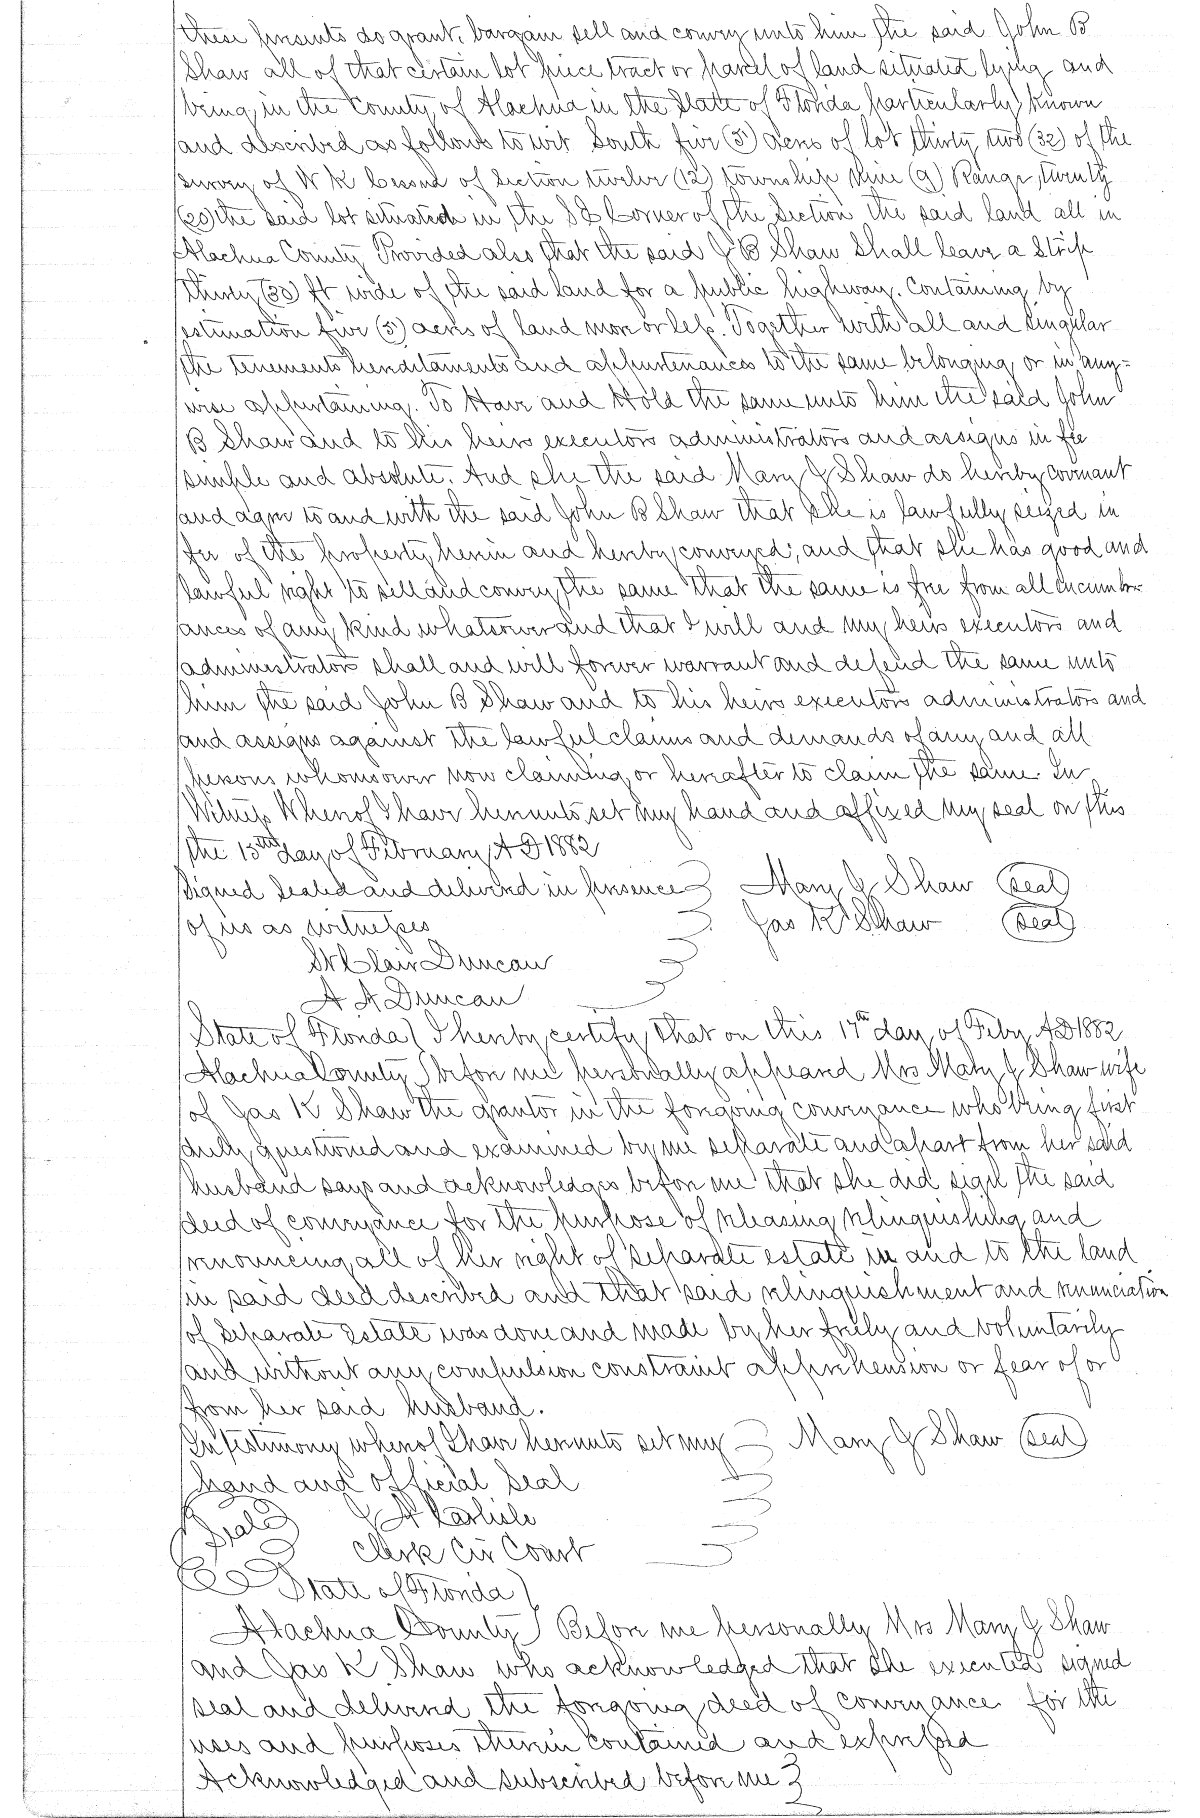 these presents do grant, bargain sell and convey unto him the said John B
Shaw all of that certain lot piece tract or parcel of land situated lying and
being in the County of Alachua in the State of Florida particularly known
and described as follows to wit South five (5) acres of lot thirty two (32) of the
survey of W K Cessna of Section twelve (12) township nine (9) Range twenty
(20) the said lot situated in the S E Corner of the Section the said land all in
Alachua County Provided also that the said J B Shaw shall leave a strip
thirty (30) ft wide of the said land for a public highway. Containing by
estimation five (5) acres of land more or less. Together with all and singular
the tenements hereditaments and appurtenances to the same belonging or in any=
wise appertaining. To Have and Hold the same unto him the said John
B Shaw and to his heirs executors administrators and assigns in fee
simple and absolute. And she the said Mary J Shaw do hereby covenant
and agree to and with the said John B Shaw that she is lawfully seized in
fee of the property herein and hereby conveyed; and that she has good and
lawful right to sell and convey the same that the same is free from all incumbr-
ances of any kind whatsoever and that I will and my heirs executors and
administrators shall and will forever warrant and defend the same unto
him the said John B Shaw and to his heirs executors administrators and
and assigns against the lawful claims and demands of any and all
persons whomsoever now claiming or hereafter to claim the same. In
Witness Whereof I have hereunto set my hand and affixed my seal on this
the 15th day of February A D 1882
Signed Sealed and delivered in presence Mary J Shaw (seal)
of us as witnesses Jas K Shaw (seal)
St Clair Duncan
A A Duncan
State of Florida ( I hereby certify that on this 17th day of Feby A D 1882
Alachua County ) before me personally appeared Mrs Mary J Shaw wife
of Jas K Shaw the grantor in the foregoing conveyance who being first
duly questioned and examined by me separate and apart from her said
husband says and acknowledges before me that she did sign the said
deed of conveyance for the purpose of releasing relinquishing and
renouncing all of her right of separate estate in and to the land
in said deed described and that said relinquishment and renunciation
of separate estate was done and made by her freely and voluntarily
and without any compulsion constraint apprehension or fear of or
from her said husband.
In testimony whereof I have hereunto set my Mary J Shaw (seal)
hand and official Seal
(Seal) J A Carlisle
Clerk Cir Court
State of Florida )
Alachua County ) Before me personally Mrs Mary J Shaw
and Jas K Shaw who acknowledged that she executed signed
seal and delivered the foregoing deed of conveyance for the
uses and purposes therein contained and expressed
Acknowledged and subscribed before me }